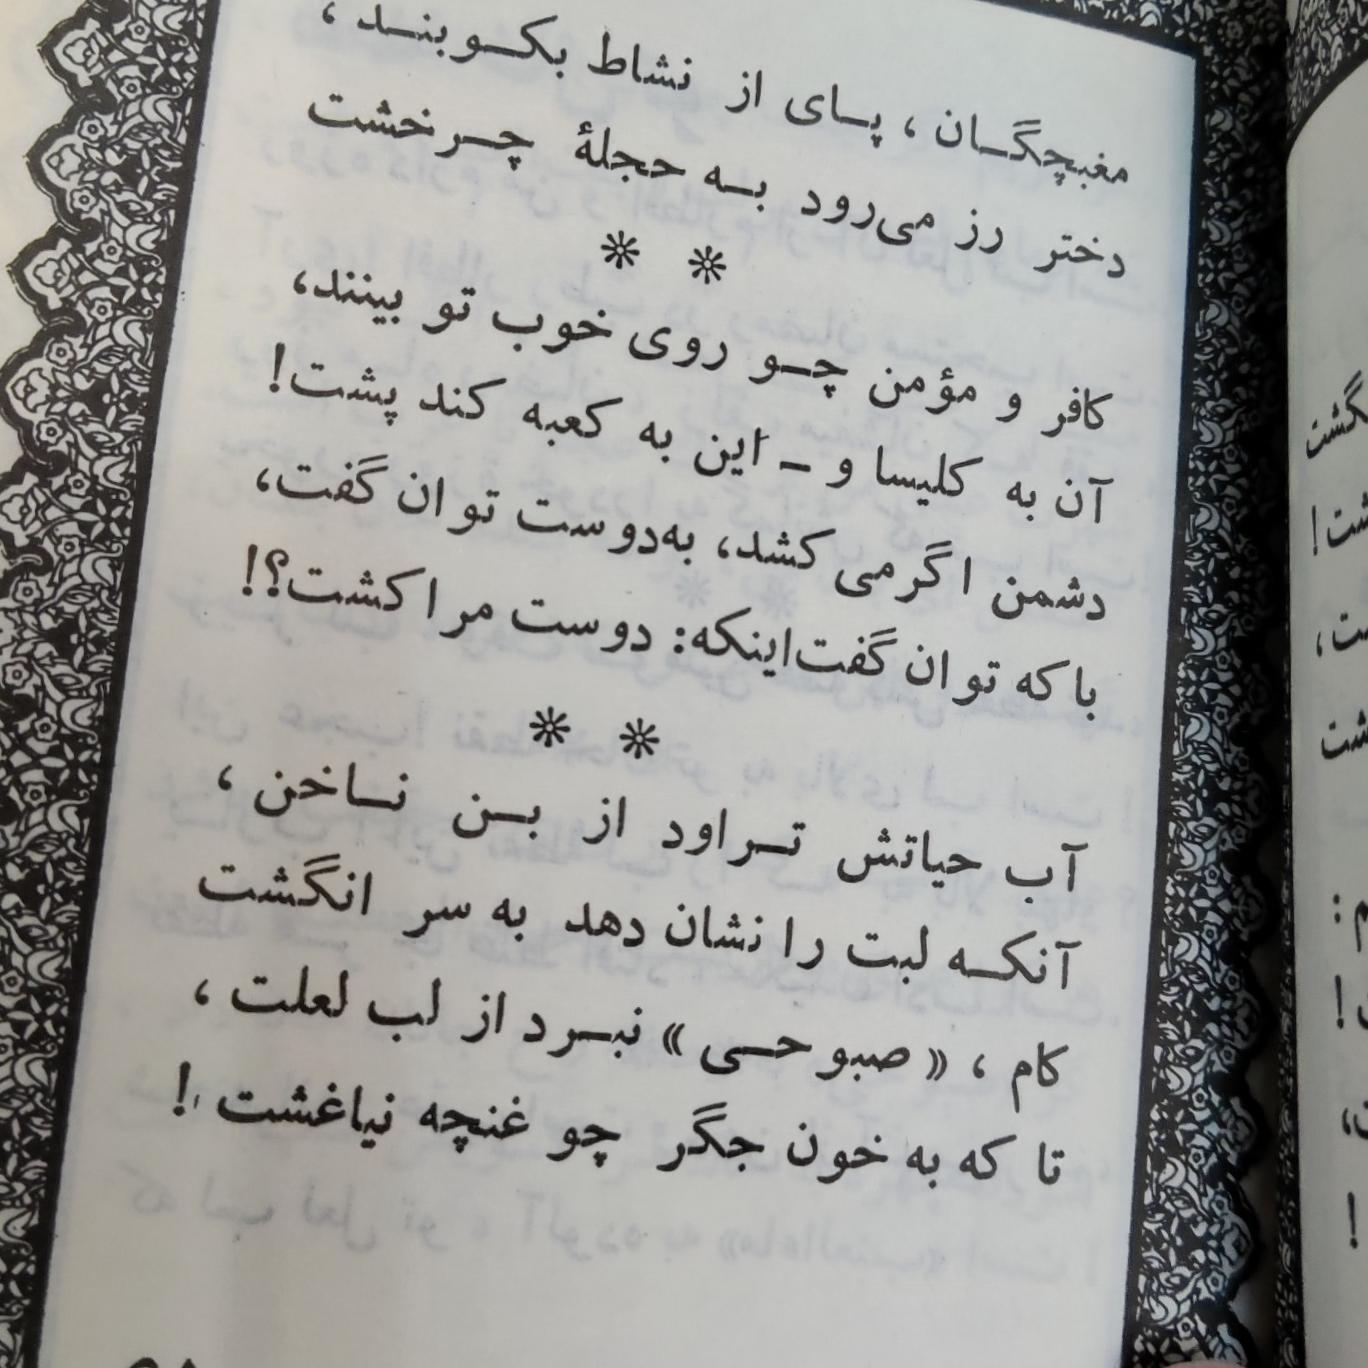 مغبچگـان ، پـای از نشاط بکـوبنـد ،
دختر رز می‌رود بـه حجلهٔ چـرخشت
کافر و مؤمن چـو روی خوب تو بینند،
آن به کلیسا و ـ این به کعبه کند پشت!
دشمن اگر می کشد، به‌دوست توان گفت،
با که توان گفت‌اینکه: دوست مرا کشت؟!
آب حیاتش تـراود از بـن نـاخن ،
آنکـه لبت را نشان دهد به سر انگشت
کام ، «صبوحـی» نبـرد از لب لعلت ،
تا که به خون جگر چو غنچه نیاغشت !